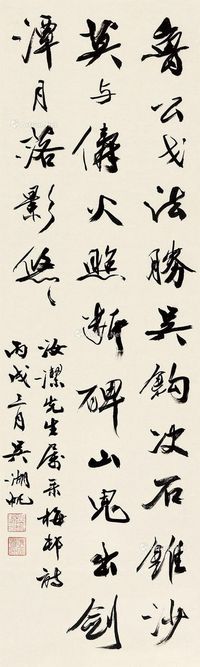 魯公戈法勝吳鉤決石錐沙
莫與儔火照斷碑山鬼出劍
潭月落影悠〻
汝潔先生屬录梅邨詩
丙戌三月吳湖帆